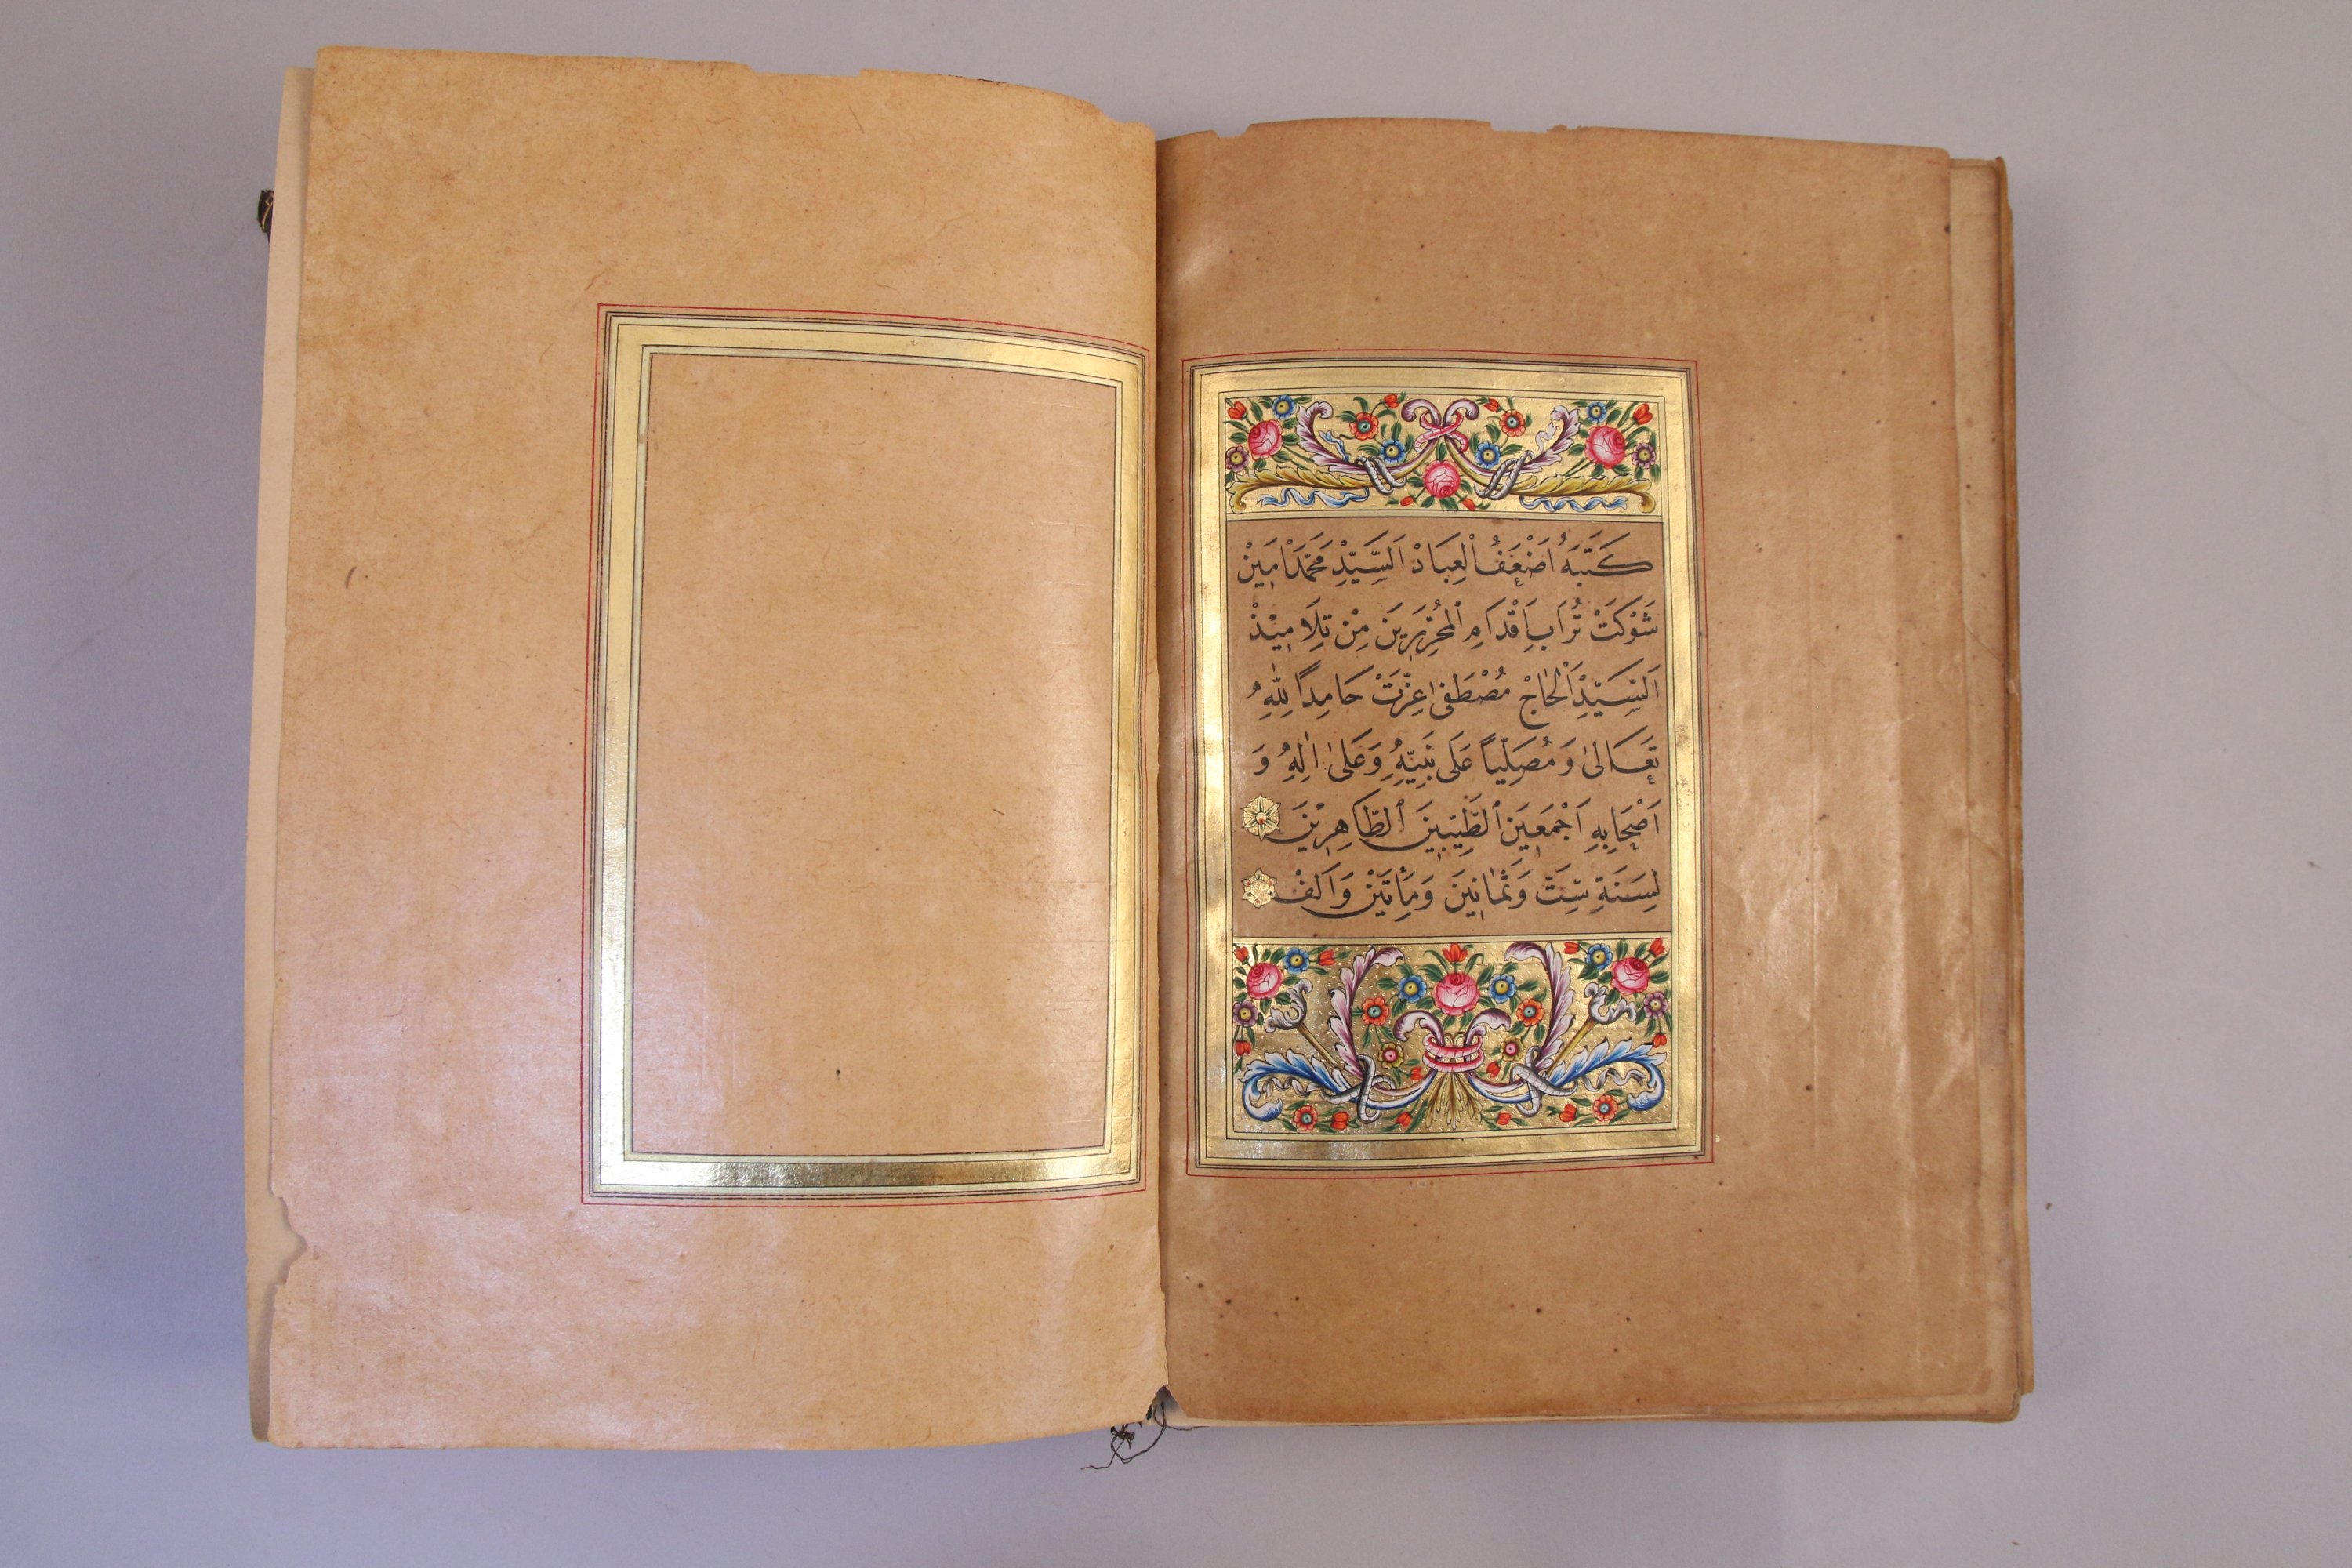 كَتَبَهُ اَضْعَفُ الْعِبَادْ اَلسَّيِّدْ مُحَمَّدْ اَمِينْ
شَوْكَتْ تُرَابِ اَقْدَامِ الْمُحَرِّرِينَ مِنْ تَلَامِيذْ
اَلسَّيِّدْ اَلْحَاجْ مُصْطَفٰى عِزَّتْ حَامِدًا لِلّٰهِ
تَعَالٰى وَمُصَلِّيًا عَلَى نَبِيِّهِ وَعَلٰى اٰلِهِ وَ
اَصْحَابِهِ اَجْمَعِينَ الطَّيِّبِينَ الطَّاهِرِينَ
لِسَنَةِ سِتَّ وَثَمٰانِينَ وَمِأَتَيْنْ وَاَلَفْ